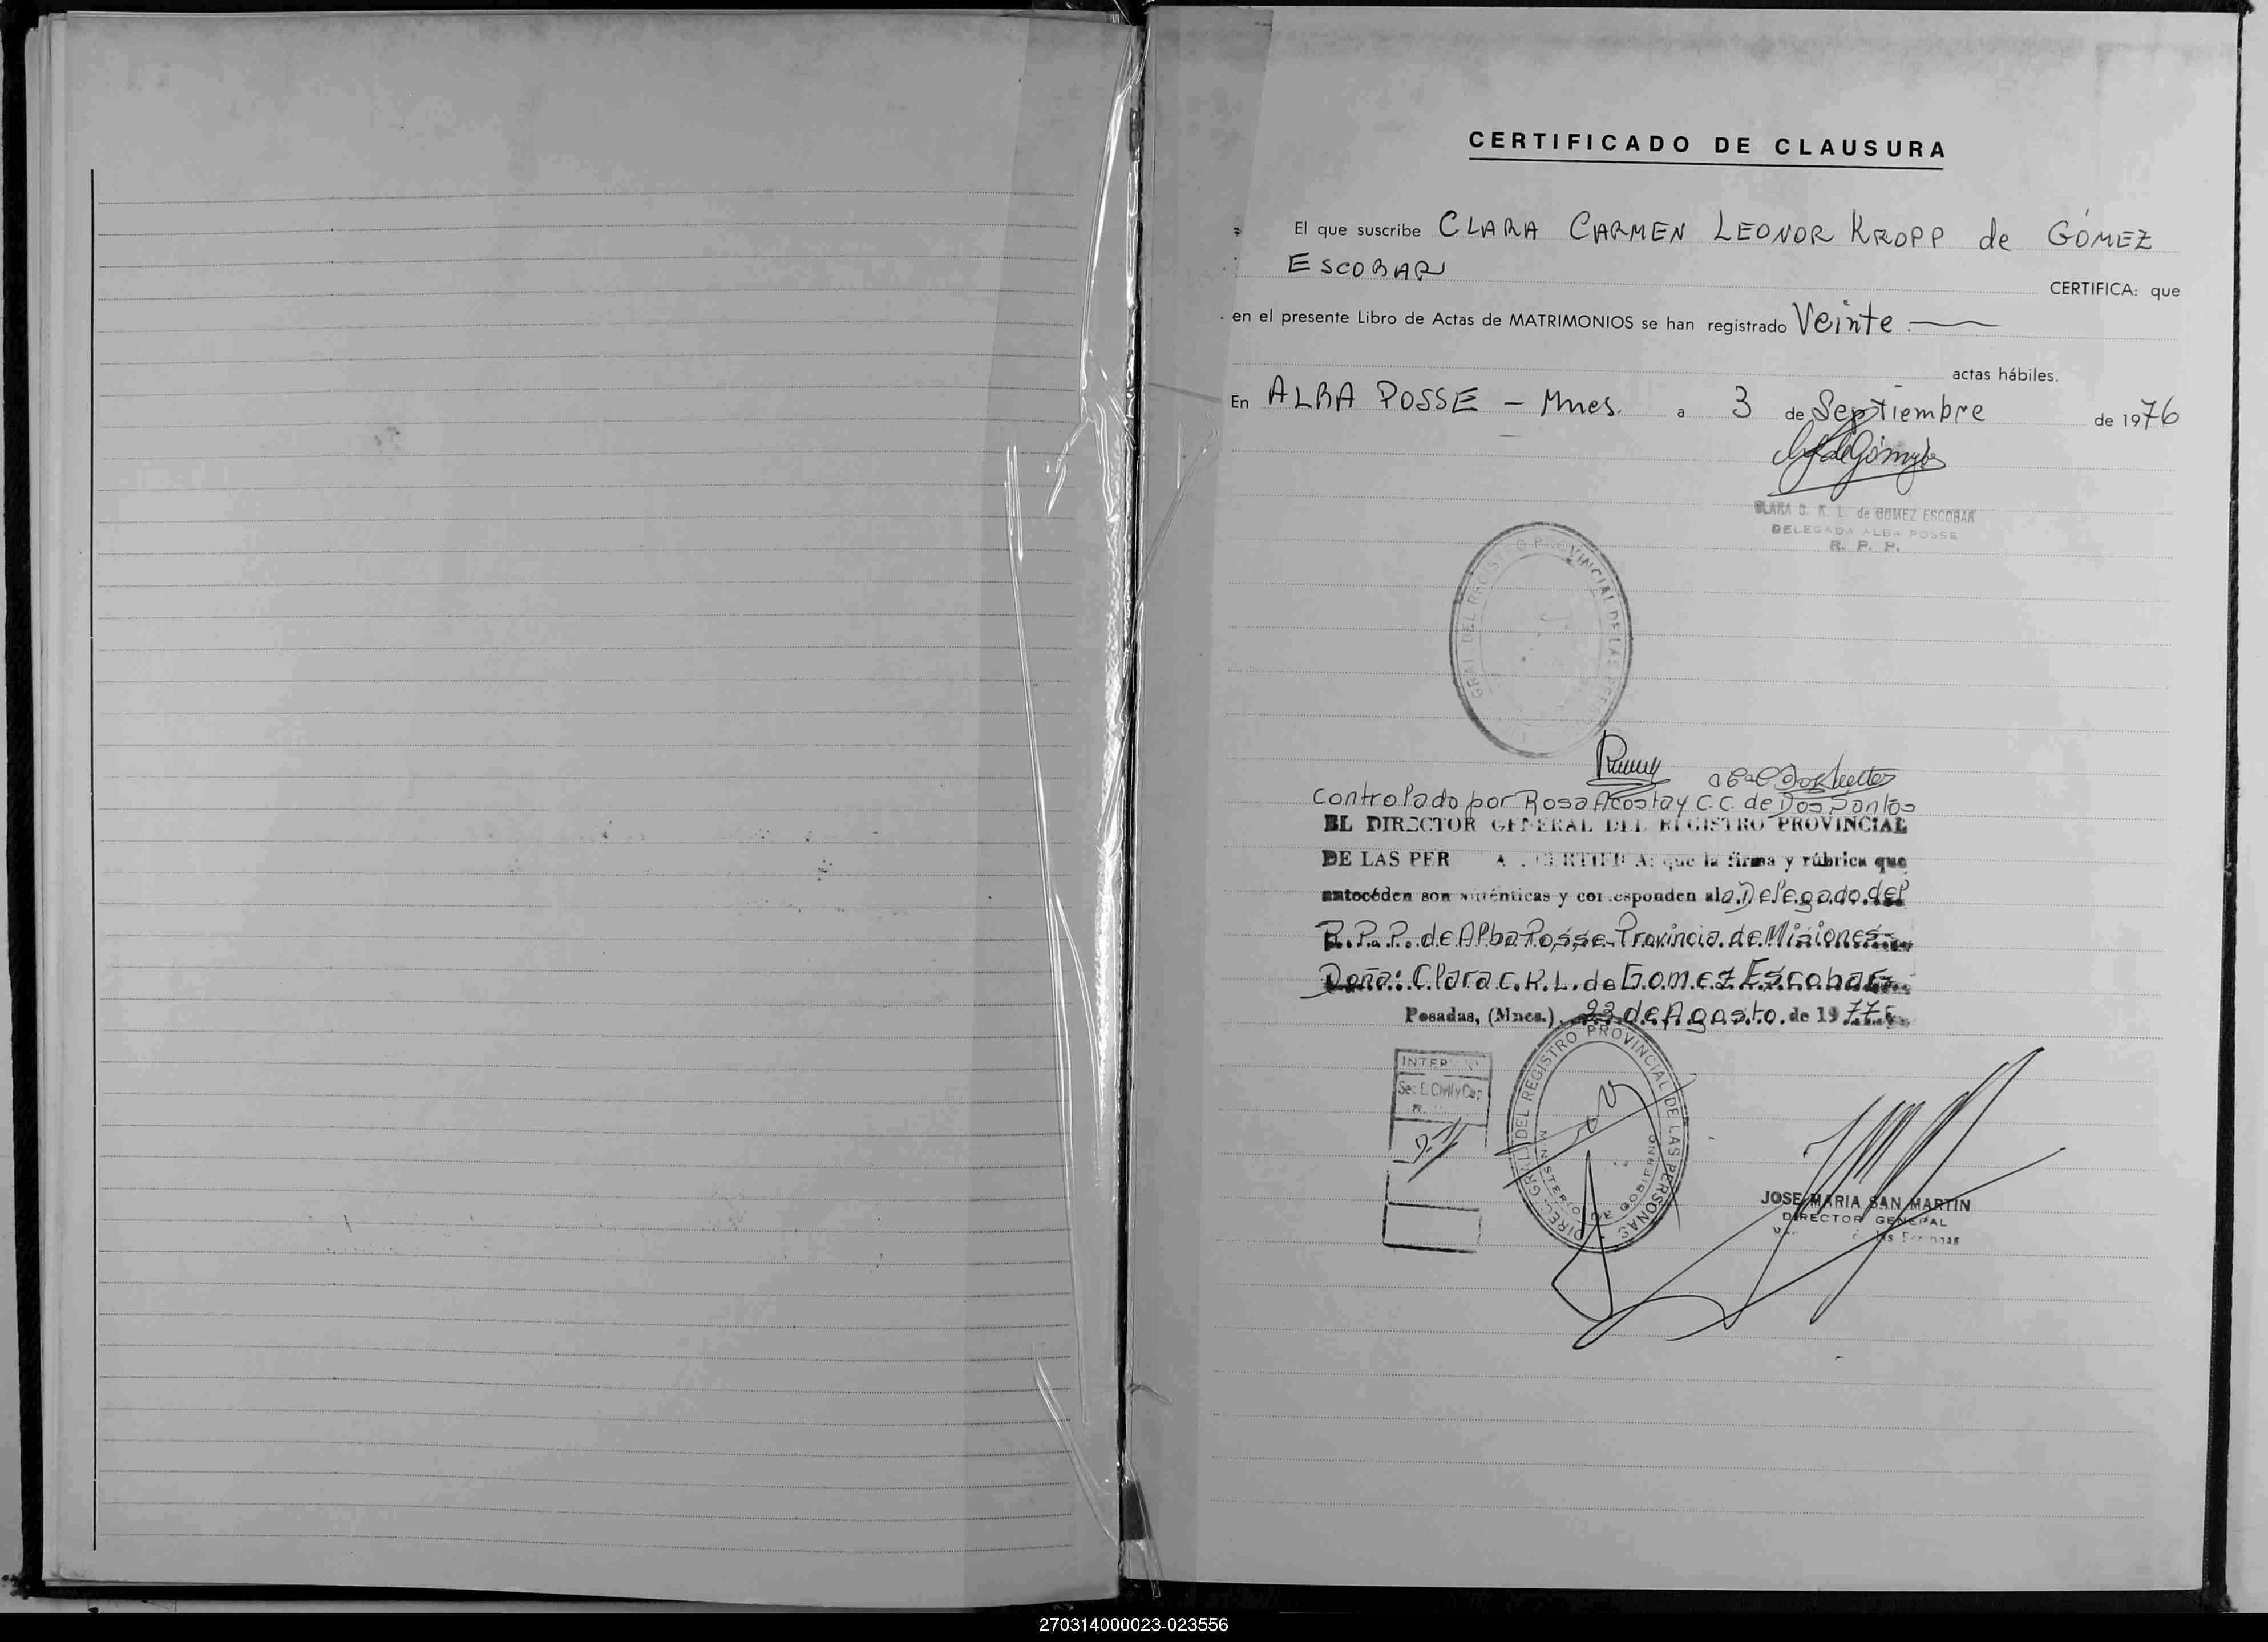 CERTIFICADO DE CLAUSURA
El que suscribe CLARA CARMEN LEONOR KROPP de GÓMEZ
ESCOBAR
CERTIFICA: que
en el presente Libro de Actas de MATRIMONIOS se han registrado Veinte
actas hábiles.
En ALBA POSSE - Mnes. a 3 de Septiembre de 1976
CLARA C. K. L. de GOMEZ ESCOBAR
DELEGADA ALBA POSSE
R. P. P.
GRAL DEL REGISTRO PROVINCIAL DE LAS
Controlado por Rosa Acosta y C.C. de Dos Santos
EL DIRECTOR GENERAL DEL REGISTRO PROVINCIAL
DE LAS PER A CERTIFICA: que la firma y rúbrica que
antecéden son auténticas y corresponden al a Delegado del
R.P.P. de Alba Posse-Provincia de Misiones-
Doña: Clara C.K.L. de Gomez Escobar
Posadas, (Mnes.) 23 de Agosto de 1977
DIREC. GRAL. DEL REGISTRO PROVINCIAL DE LAS PERSONAS
MINISTERIO DE GOBIERNO
INTER
Sec. E. Civil y Cap
JOSE MARIA SAN MARTIN
DIRECTOR GENERAL
de las Personas
270314000023-023556